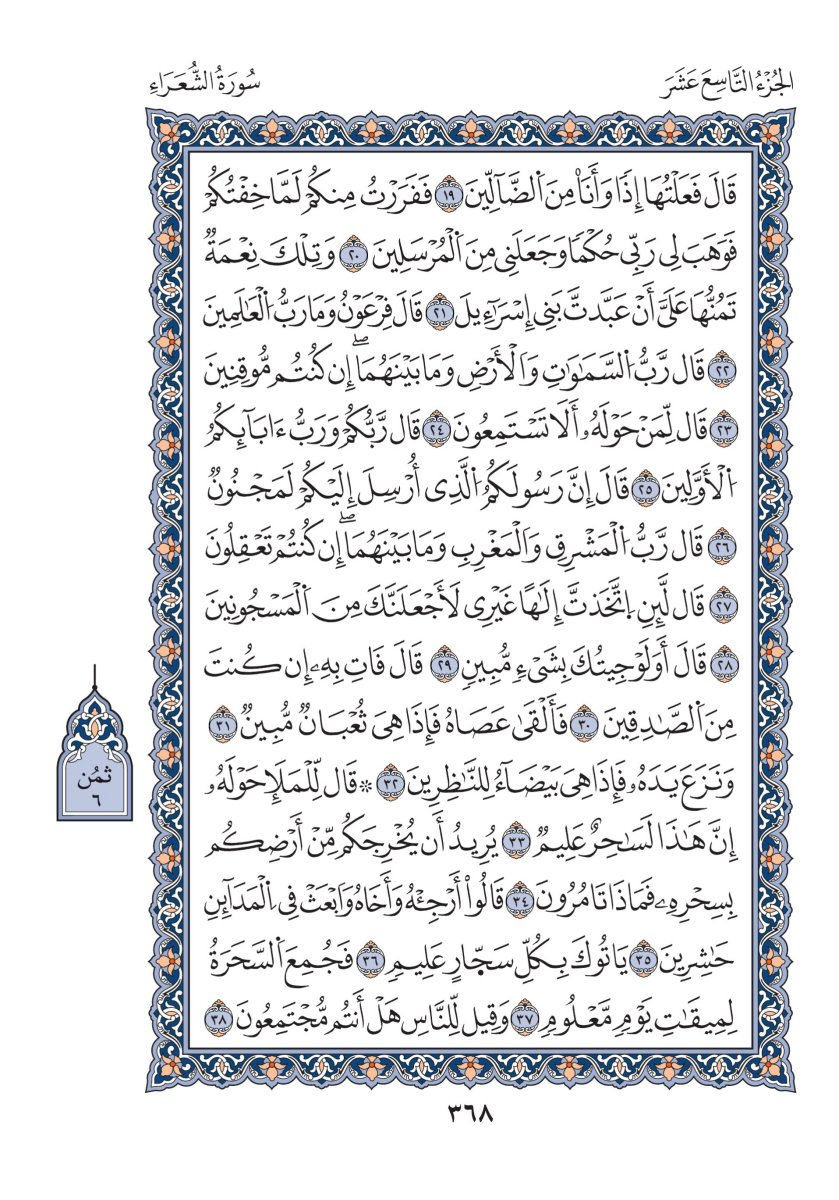 الجُزْءُ التَّاسِعَ عَشَرَ
سُورَةُ الشُّعَرَاءِ
قَالَ فَعَلْتُهَا إِذًا وَأَنَا۠ مِنَ اَ۬لضَّآلِّينَ ١٩ فَفَرَرْتُ مِنكُمْ لَمَّا خِفْتُكُمْ
فَوَهَبَ لِى رَبِّى حُكْمًا وَجَعَلَنِى مِنَ اَ۬لْمُرْسَلِينَ ٢٠ وَتِلْكَ نِعْمَةٌ
تَمُنُّهَا عَلَىَّ أَنْ عَبَّدتَّ بَنِى إِسْرَآءِيلَ ٢١ قَالَ فِرْعَوْنُ وَمَا رَبُّ اُ۬لْعَٰلَمِينَ
٢٢ قَال رَّبُّ اُ۬لسَّمَٰوَٰتِ وَالْأَرْضِ وَمَا بَيْنَهُمَا ۖ إِن كُنتُم مُّوقِنِينَ
٢٣ قَال لِّمَنْ حَوْلَهُۥ أَلَا تَسْتَمِعُونَ ٢٤ قَال رَّبُّكُمْ وَرَبُّ ءَابَآئِكُمُ
اُ۬لْأَوَّلِينَ ٢٥ قَالَ إِنَّ رَسُولَكُمُ اُ۬لَّذِى أُرْسِلَ إِلَيْكُمْ لَمَجْنُونٌ
٢٦ قَال رَّبُّ اُ۬لْمَشْرِقِ وَالْمَغْرِبِ وَمَا بَيْنَهُمَا ۖ إِن كُنتُمْ تَعْقِلُونَ
٢٧ قَال لَّئِنِ اِ۪تَّخَذتَّ إِلَٰهًا غَيْرِى لَأَجْعَلَنَّكَ مِنَ اَ۬لْمَسْجُونِينَ
٢٨ قَالَ أَوَلَوْ جِيتُكَ بِشَىْءٍ مُّبِينٍ ٢٩ قَالَ فَاتِ بِهِۦ إِن كُنتَ
مِنَ اَ۬لصَّٰدِقِينَ ٣٠ فَأَلْقَىٰ عَصَاهُ فَإِذَا هِىَ ثُعْبَانٌ مُّبِينٌ ٣١
وَنَزَعَ يَدَهُۥ فَإِذَا هِىَ بَيْضَآءُ لِلنَّٰظِرِينَ ٣٢ ۞ قَال لِّلْمَلَإِ حَوْلَهُۥ
إِنَّ هَٰذَا لَسَٰحِرٌ عَلِيمٌ ٣٣ يُرِيدُ أَن يُخْرِجَكُم مِّنْ أَرْضِكُم
بِسِحْرِهِۦ فَمَاذَا تَامُرُونَ ٣٤ قَالُوا۟ أَرْجِئْهُ وَأَخَاهُ وَابْعَثْ فِى اِ۬لْمَدَآئِنِ
حَٰشِرِينَ ٣٥ يَاتُوكَ بِكُلِّ سَحَّارٍ عَلِيمٍ ٣٦ فَجُمِعَ اَ۬لسَّحَرَةُ
لِمِيقَٰتِ يَوْمٍ مَّعْلُومٍ ٣٧ وَقِيل لِّلنَّاسِ هَلْ أَنتُم مُّجْتَمِعُونَ ٣٨
ثمُن
٦
٣٦٨